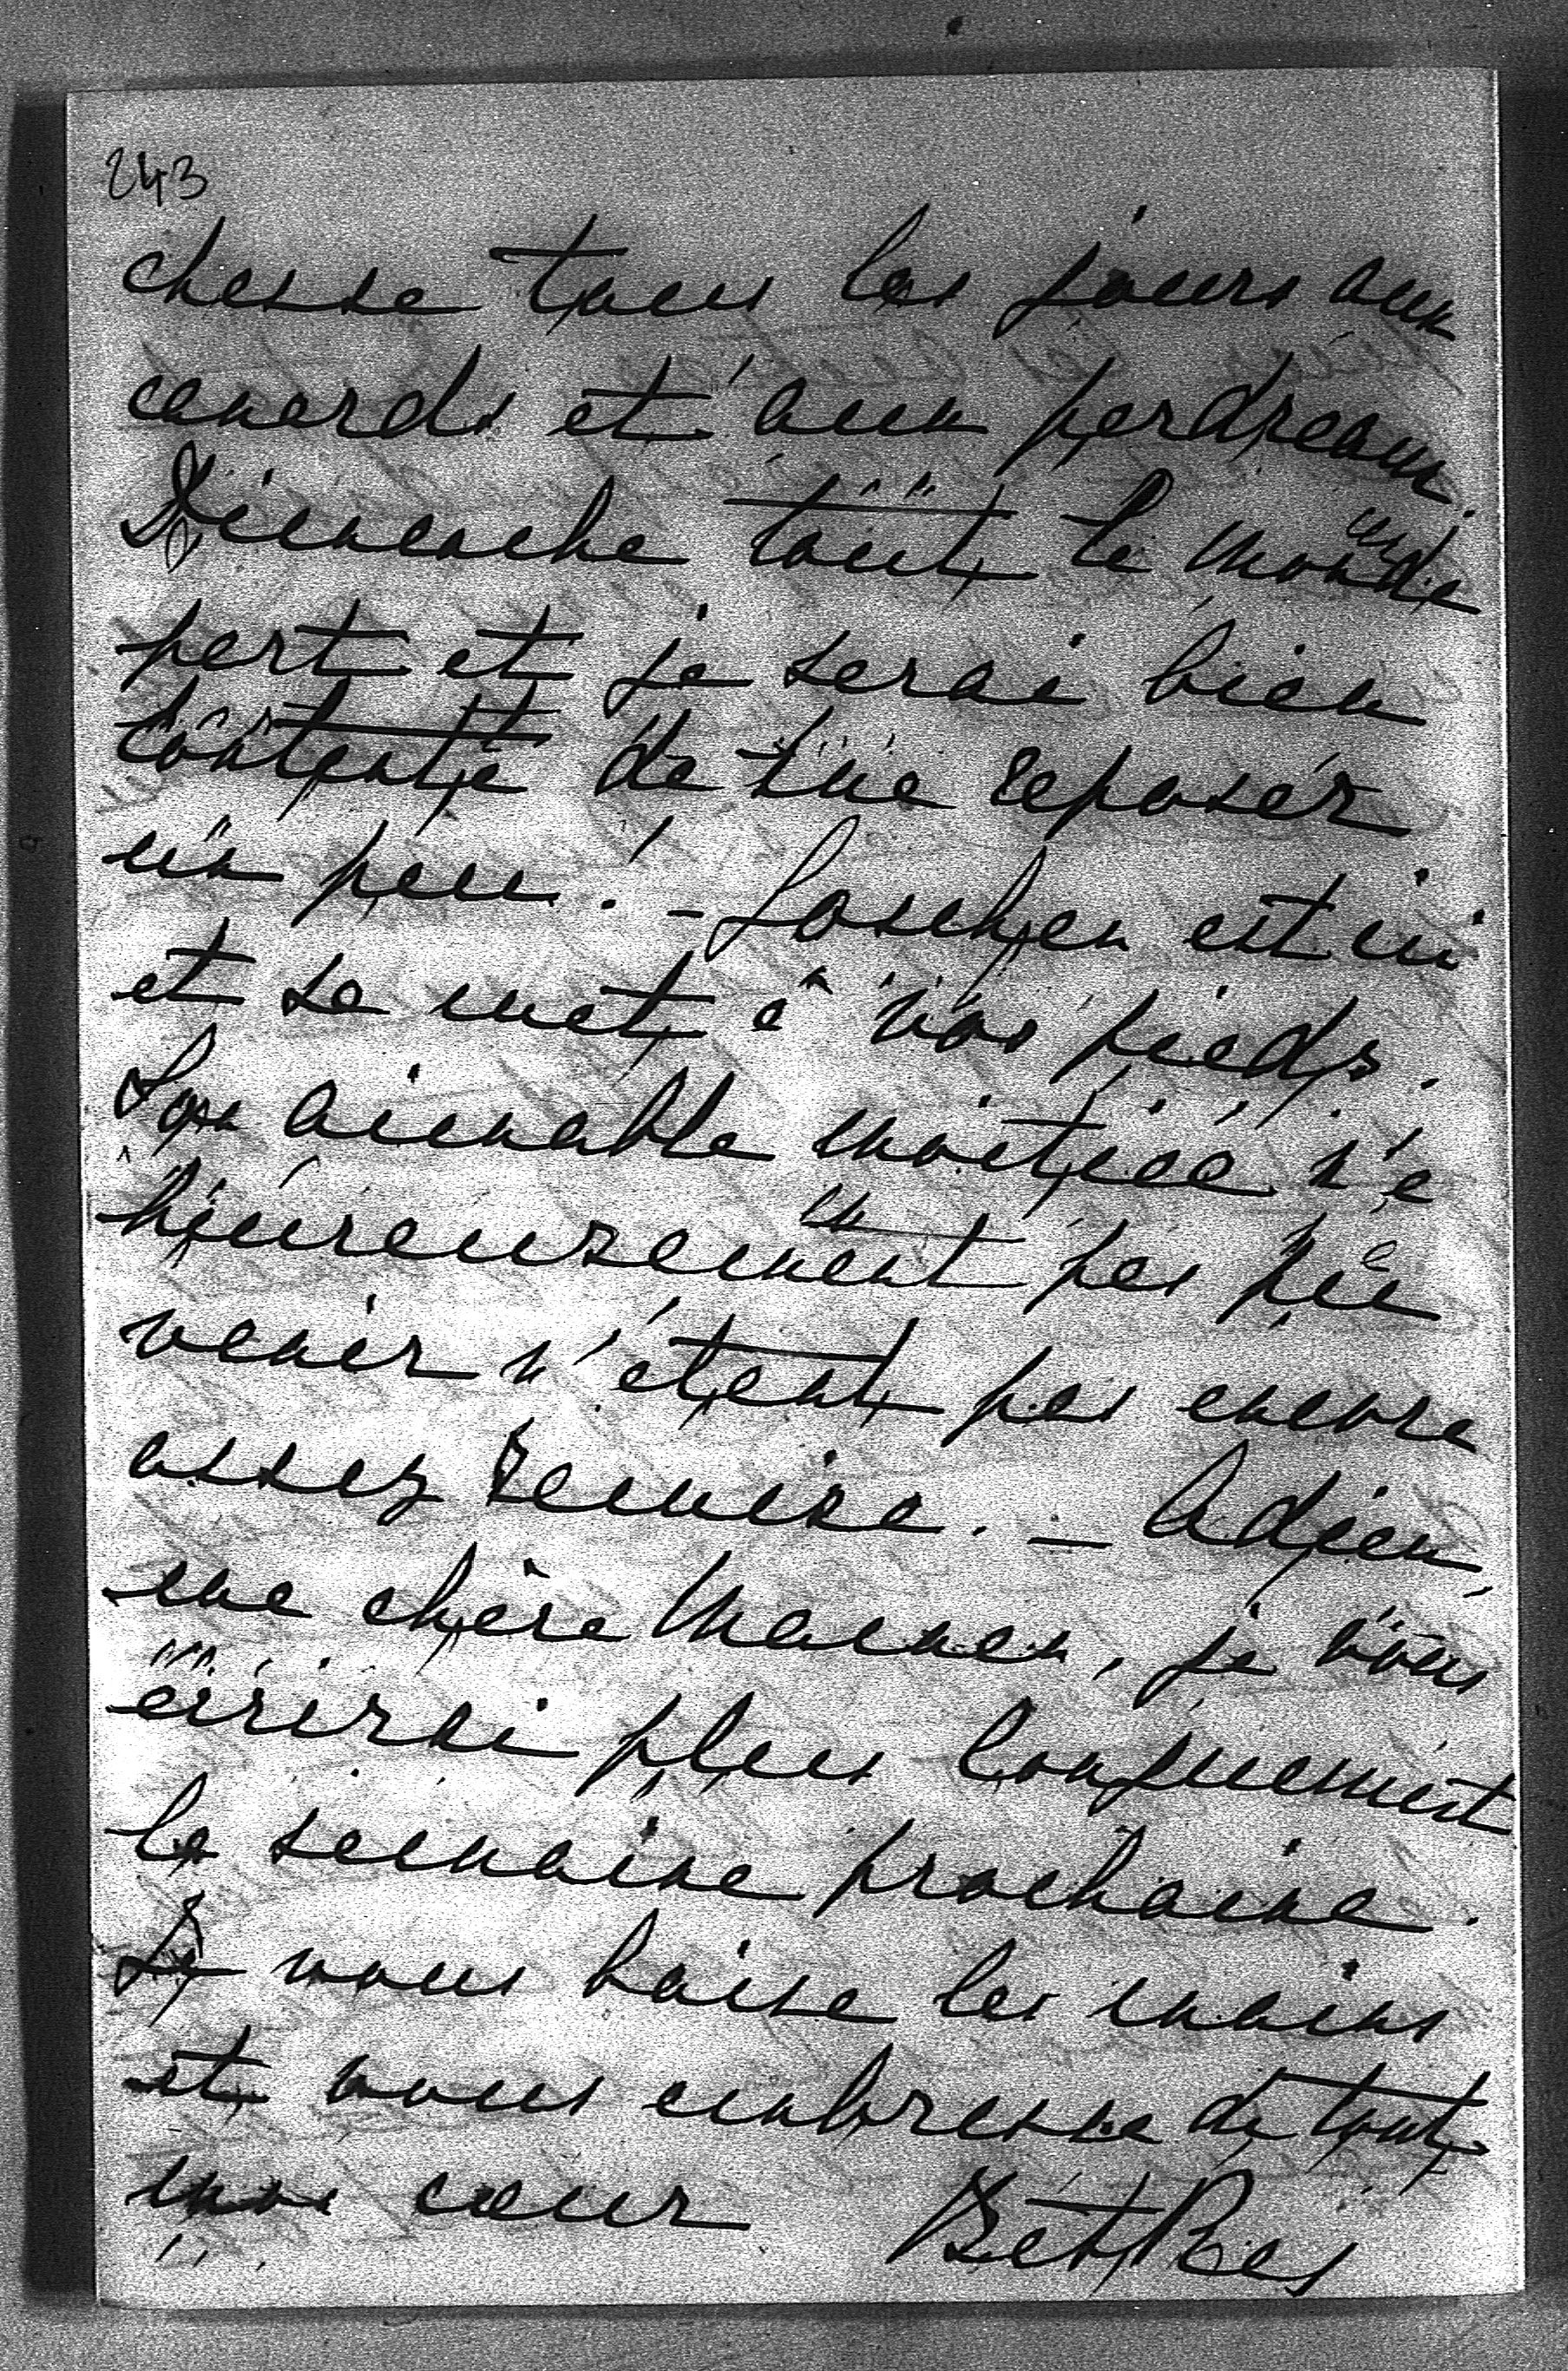 243
chasse tous les jours aux
canards et aux perdreaux.
Dimanche tout le monde
part et je serai bien
contente de me reposer
un peu. – est ici
et se met à vos pieds.
Son aimable moitié n'a
heureusement pas pu
venir n'étant pas encore
assez remise. – Adieu,
ma chère Maman, je vous
écrirai plus longuement
la semaine prochaine.
Je vous baise les mains
et vous embrasse de tout
mon cœur